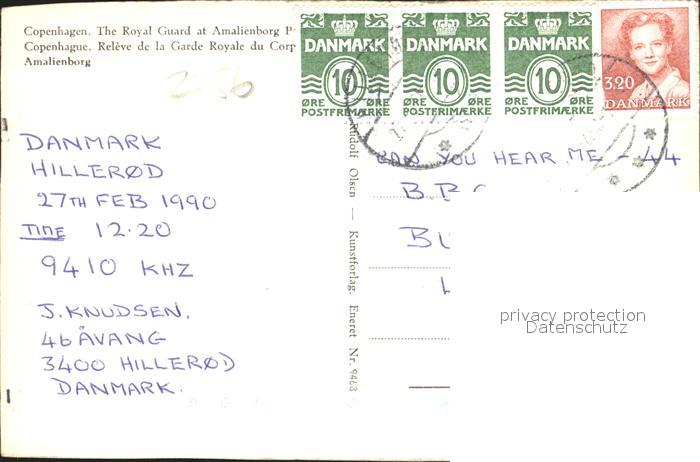 Copenhagen. The Royal Guard at Amalienborg P
Copenhague. Relève de la Garde Royale du Corp
Amalienborg
DANMARK
10
ØRE
POSTFRIMÆRKE
DANMARK
10
ØRE
POSTFRIMÆRKE
DANMARK
10
ØRE
POSTFRIMÆRKE
3.20
DANMARK
DANMARK
HILLERØD
27TH FEB 1990
TIME 12.20
9410 KHZ
J. KNUDSEN.
46 ÅVANG
3400 HILLERØD
DANMARK.
Rudolf Olsen — Kunstforlag. Eneret Nr. 9468
CAN YOU HEAR ME - 44
B.B
privacy protection
Datenschutz